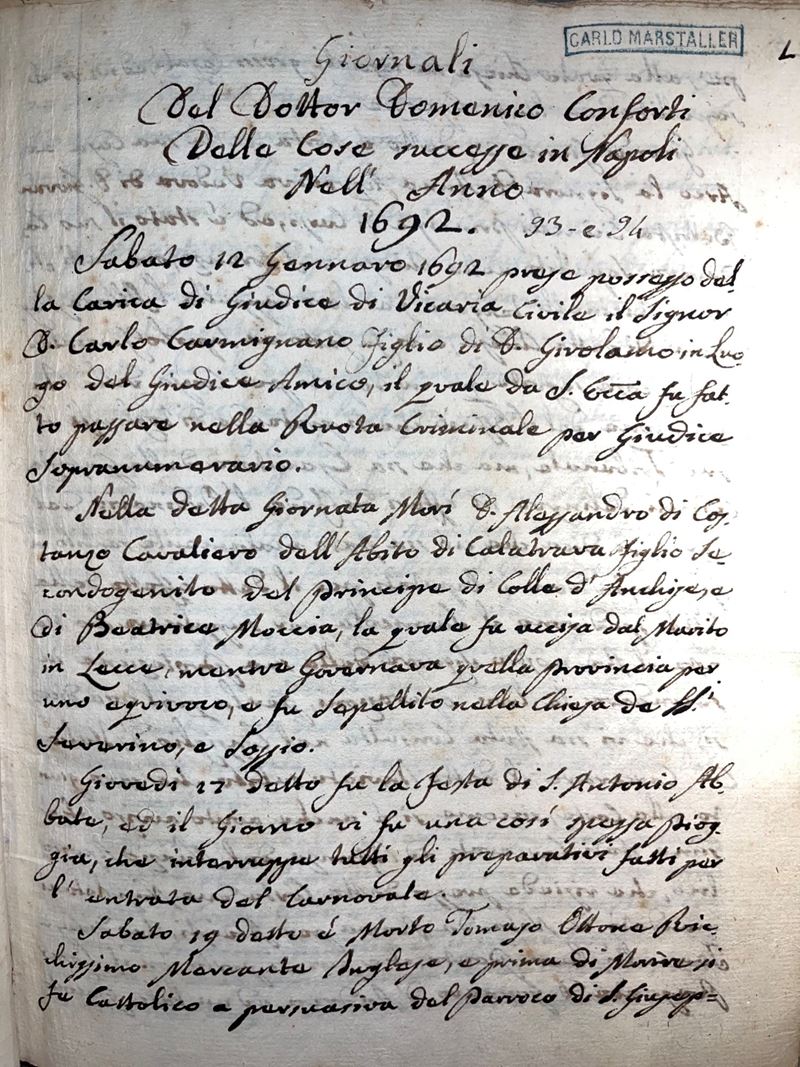 CARLO MARSTALLER
Giornali
Del Dottor Domenico Conforti
Delle Cose successe in Napoli
Nell' Anno
1692. 93-e 94
Sabato 12 Gennaro 1692 prese possesso del-
la Carica di Giudice di Vicaria Civile il Signor
D. Carlo Carmignano Figlio di D. Girolamo in Luo
go del Giudice Amico, il quale da S. Ecc̅a fu fat-
to passare nella Ruota Criminale per Giudice
Sopranumerario.
Nella detta Giornata Morì D. Alessandro di Cos-
tanzo Cavaliero dell'Abito di Calatrava Figlio Se-
condogenito del Principe di Colle d'Anchise, e
di Beatrice Moccia, la quale fu uccisa dal Marito
in Lecce, mentre Governava quella Provincia per
uno equivoco, e fu Sepellito nella Chiesa de SS.
Severino, e Sossio.
Giovedì 17 detto fu la Festa di S. Antonio Ab-
bate, ed il Giorno vi fu una così spessa piog-
gia, che interruppe tutti gli preparativi fatti per
l'entrata del Carnovale.
Sabato 19 detto è Morto Tomaso Ottone Ric-
chissimo Mercante Inglese, e prima di Morire si
fe Cattolico a persuasiva del Parroco di S. Giusep=